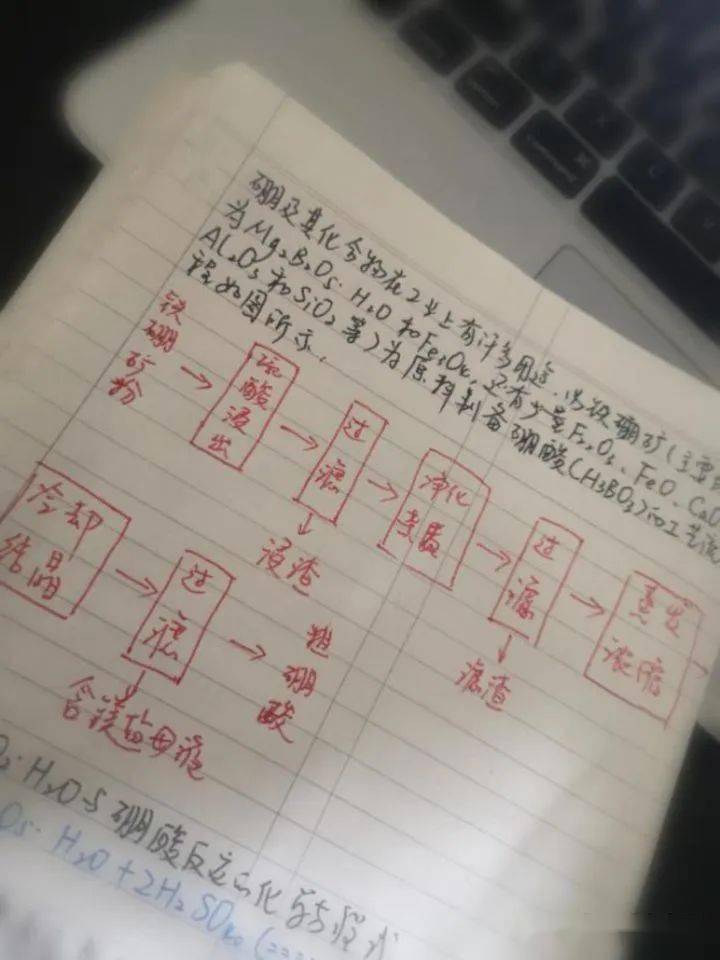 硼及其化合物在工业上有许多用途.以铁硼矿(主要
为Mg₂B₂O₅·H₂O和Fe₃O₄,还有少量Fe₂O₃、FeO、CaO
Al₂O₃和SiO₂等)为原料制备硼酸(H₃BO₃)的工艺流
程如图所示.
铁硼矿粉 → 硫酸浸出 → 过滤 → 净化除杂 → 过滤 → 蒸发浓缩 →
↓ 浸渣
↓ 滤渣
冷却结晶 → 过滤 → 粗硼酸
↓ 含镁盐母液
·H₂O与硼酸反应的化学方程式
O₅·H₂O+2H₂SO₄